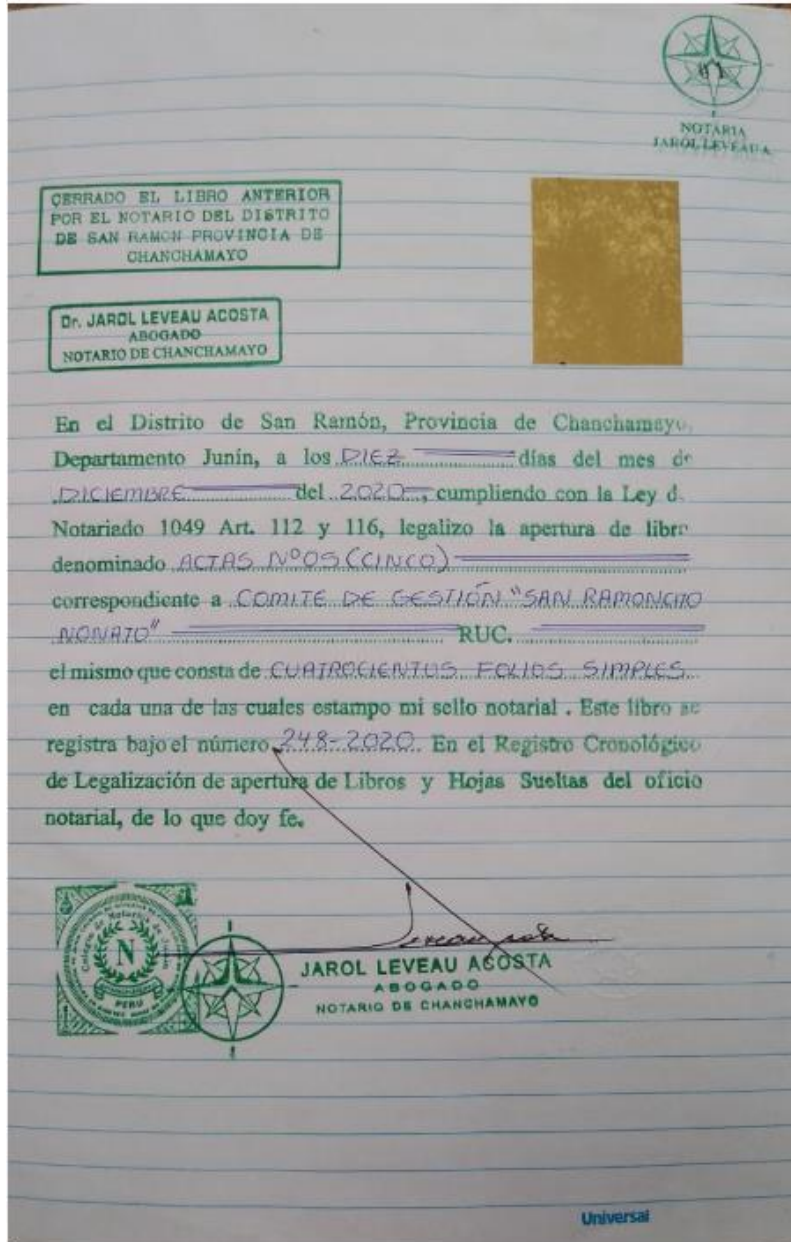 01
NOTARIA
JAROL LEVEAU A
CERRADO EL LIBRO ANTERIOR
POR EL NOTARIO DEL DISTRITO
DE SAN RAMON PROVINCIA DE
CHANCHAMAYO
Dr. JAROL LEVEAU ACOSTA
ABOGADO
NOTARIO DE CHANCHAMAYO
En el Distrito de San Ramón, Provincia de Chanchamayo,
Departamento Junín, a los DIEZ días del mes de
DICIEMBRE del 2020, cumpliendo con la Ley d
Notariado 1049 Art. 112 y 116, legalizo la apertura de libro
denominado ACTAS Nº05 (CINCO)
correspondiente a COMITE DE GESTIÓN "SAN RAMONCITO
NONATO" RUC.
el mismo que consta de CUATROCIENTOS FOLIOS SIMPLES
en cada una de las cuales estampo mi sello notarial . Este libro se
registra bajo el número 248-2020. En el Registro Cronológico
de Legalización de apertura de Libros y Hojas Sueltas del oficio
notarial, de lo que doy fe.
Colegio de Notarios de Junín
N
PERU
JAROL LEVEAU ACOSTA
ABOGADO
NOTARIO DE CHANCHAMAYO
Universal